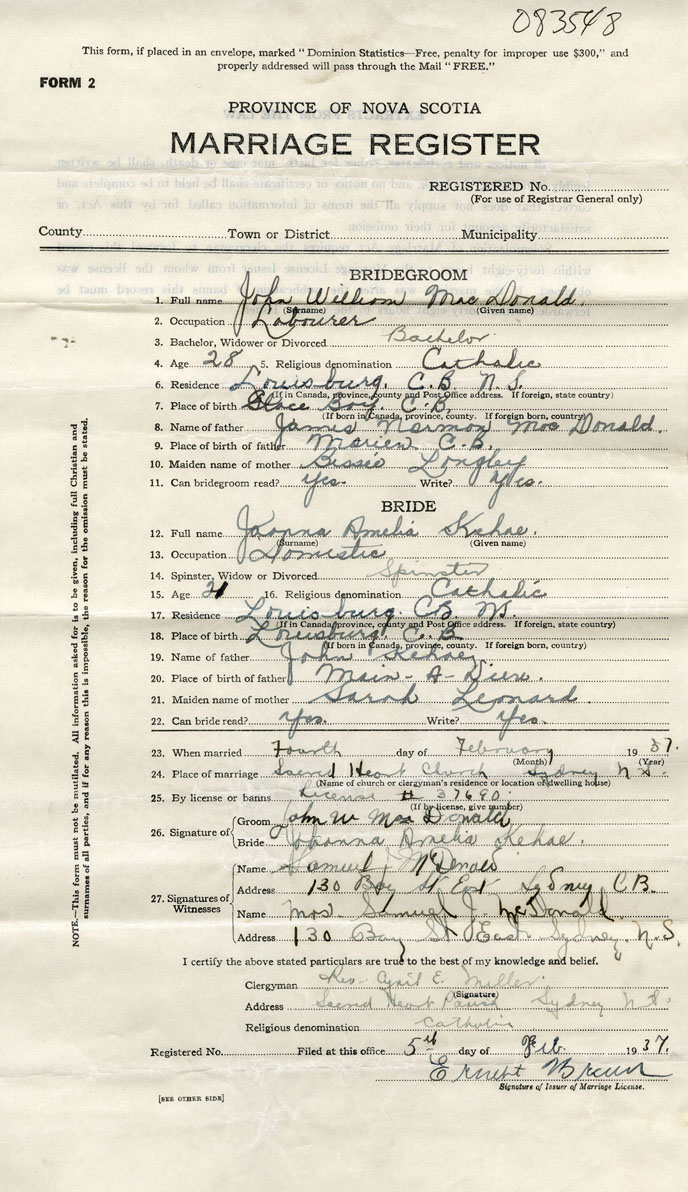 083548
This form, if placed in an envelope, marked "Dominion Statistics—Free, penalty for improper use $300," and
properly addressed will pass through the Mail "FREE."
FORM 2
PROVINCE OF NOVA SCOTIA
MARRIAGE REGISTER
REGISTERED No.
(For use of Registrar General only)
County Town or District Municipality
BRIDEGROOM
1. Full name John William MacDonald.
(Surname) (Given name)
2. Occupation Labourer
3. Bachelor, Widower or Divorced Bachelor
4. Age 28 5. Religious denomination Catholic
6. Residence Louisburg. C.B. N.S.
(If in Canada, province, county and Post Office address. If foreign, state country)
7. Place of birth Glace Bay. C.B.
(If born in Canada, province, county. If foreign born, country)
8. Name of father James Norman MacDonald.
9. Place of birth of father C.B.
10. Maiden name of mother Bessie Longley
11. Can bridegroom read? Yes. Write? Yes.
BRIDE
12. Full name Joanna Amelia Kehoe.
(Surname) (Given name)
13. Occupation Domestic
14. Spinster, Widow or Divorced Spinster
15. Age 21 16. Religious denomination Catholic
17. Residence Louisburg. CB NS.
(If in Canada, province, county and Post Office address. If foreign, state country)
18. Place of birth Louisburg. C.B.
(If born in Canada, province, county. If foreign born, country)
19. Name of father John Kehoe.
20. Place of birth of father Main-A-Dieu.
21. Maiden name of mother Sarah Leonard
22. Can bride read? Yes. Write? Yes.
23. When married Fourth day of February 1937.
(Month) (Year)
24. Place of marriage Sacred Heart Church Sydney N.S.
(Name of church or clergyman's residence or location of dwelling house)
25. By license or banns License # 37690.
(If by license, give number)
26. Signature of
Groom John W MacDonald
Bride Johanna Amelia Kehoe.
27. Signatures of Witnesses
Name Samuel J McDonald
Address 130 Bay St East Sydney C.B.
Name Mrs. Samuel J. McDonald
Address 130 Bay St East Sydney. N.S.
I certify the above stated particulars are true to the best of my knowledge and belief.
Clergyman Rev. Cyril E. Miller.
(Signature)
Address Sacred Heart Parish Sydney N.S.
Religious denomination Catholic
Registered No. Filed at this office 5th day of Feb. 1937.
Ernest Brown
Signature of Issuer of Marriage License.
[SEE OTHER SIDE]
NOTE.—This form must not be mutilated. All information asked for is to be given, including full Christian and
surnames of all parties, and if for any reason this is impossible, the reason for the omission must be stated.